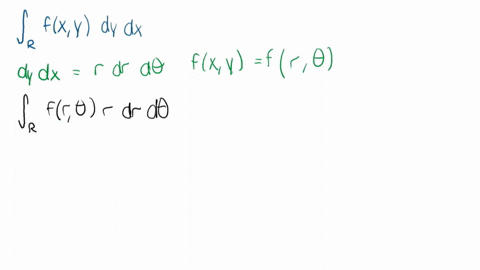 ∫_R f(x,y) dy dx
dy dx = r dr dθ f(x,y) = f(r,θ)
∫_R f(r,θ) r dr dθ